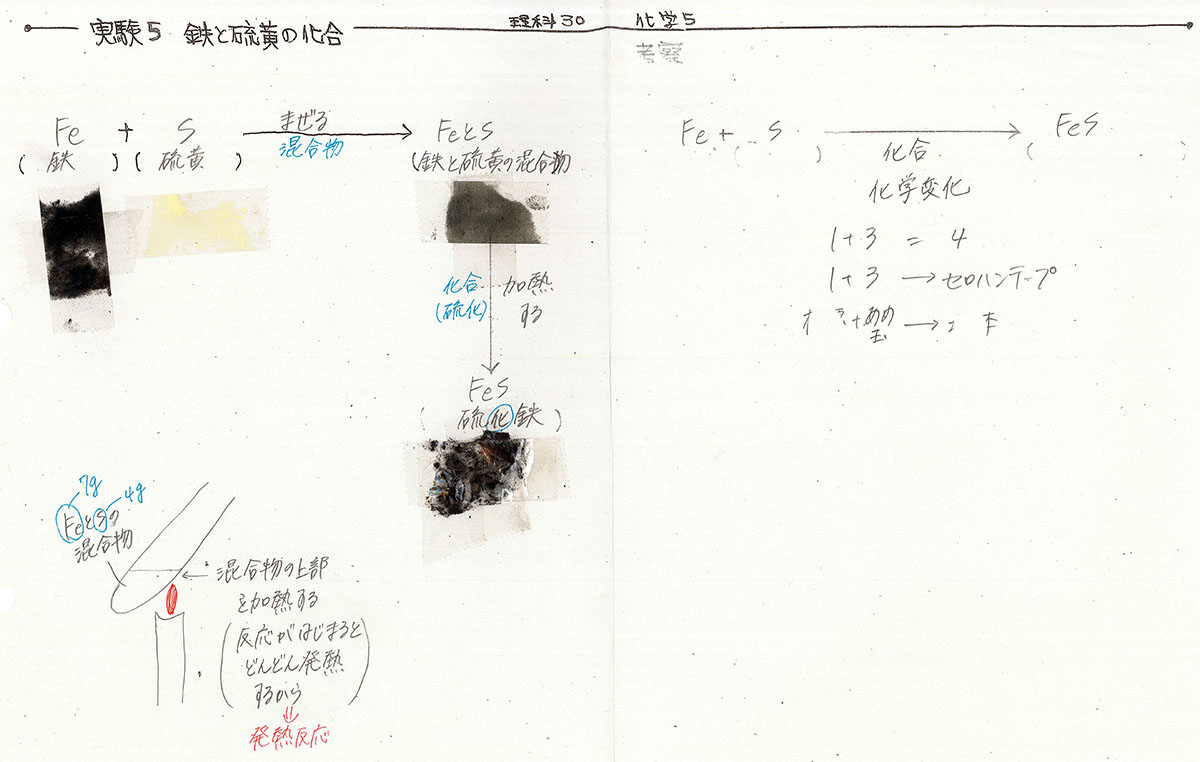 実験5 鉄と硫黄の化合
理科30 化学5
考察
Fe + S
(鉄)(硫黄)
まぜる
混合物
FeとS
(鉄と硫黄の混合物)
化合
(硫化)
加熱
する
FeS
(硫化鉄)
7g
4g
FeとSの
混合物
混合物の上部
を加熱する
(反応がはじまると
どんどん発熱
するから)
発熱反応
Fe + S
( )
化合
化学変化
FeS
( )
1+3 = 4
1+3 → セロハンテープ
+あめ
玉 →